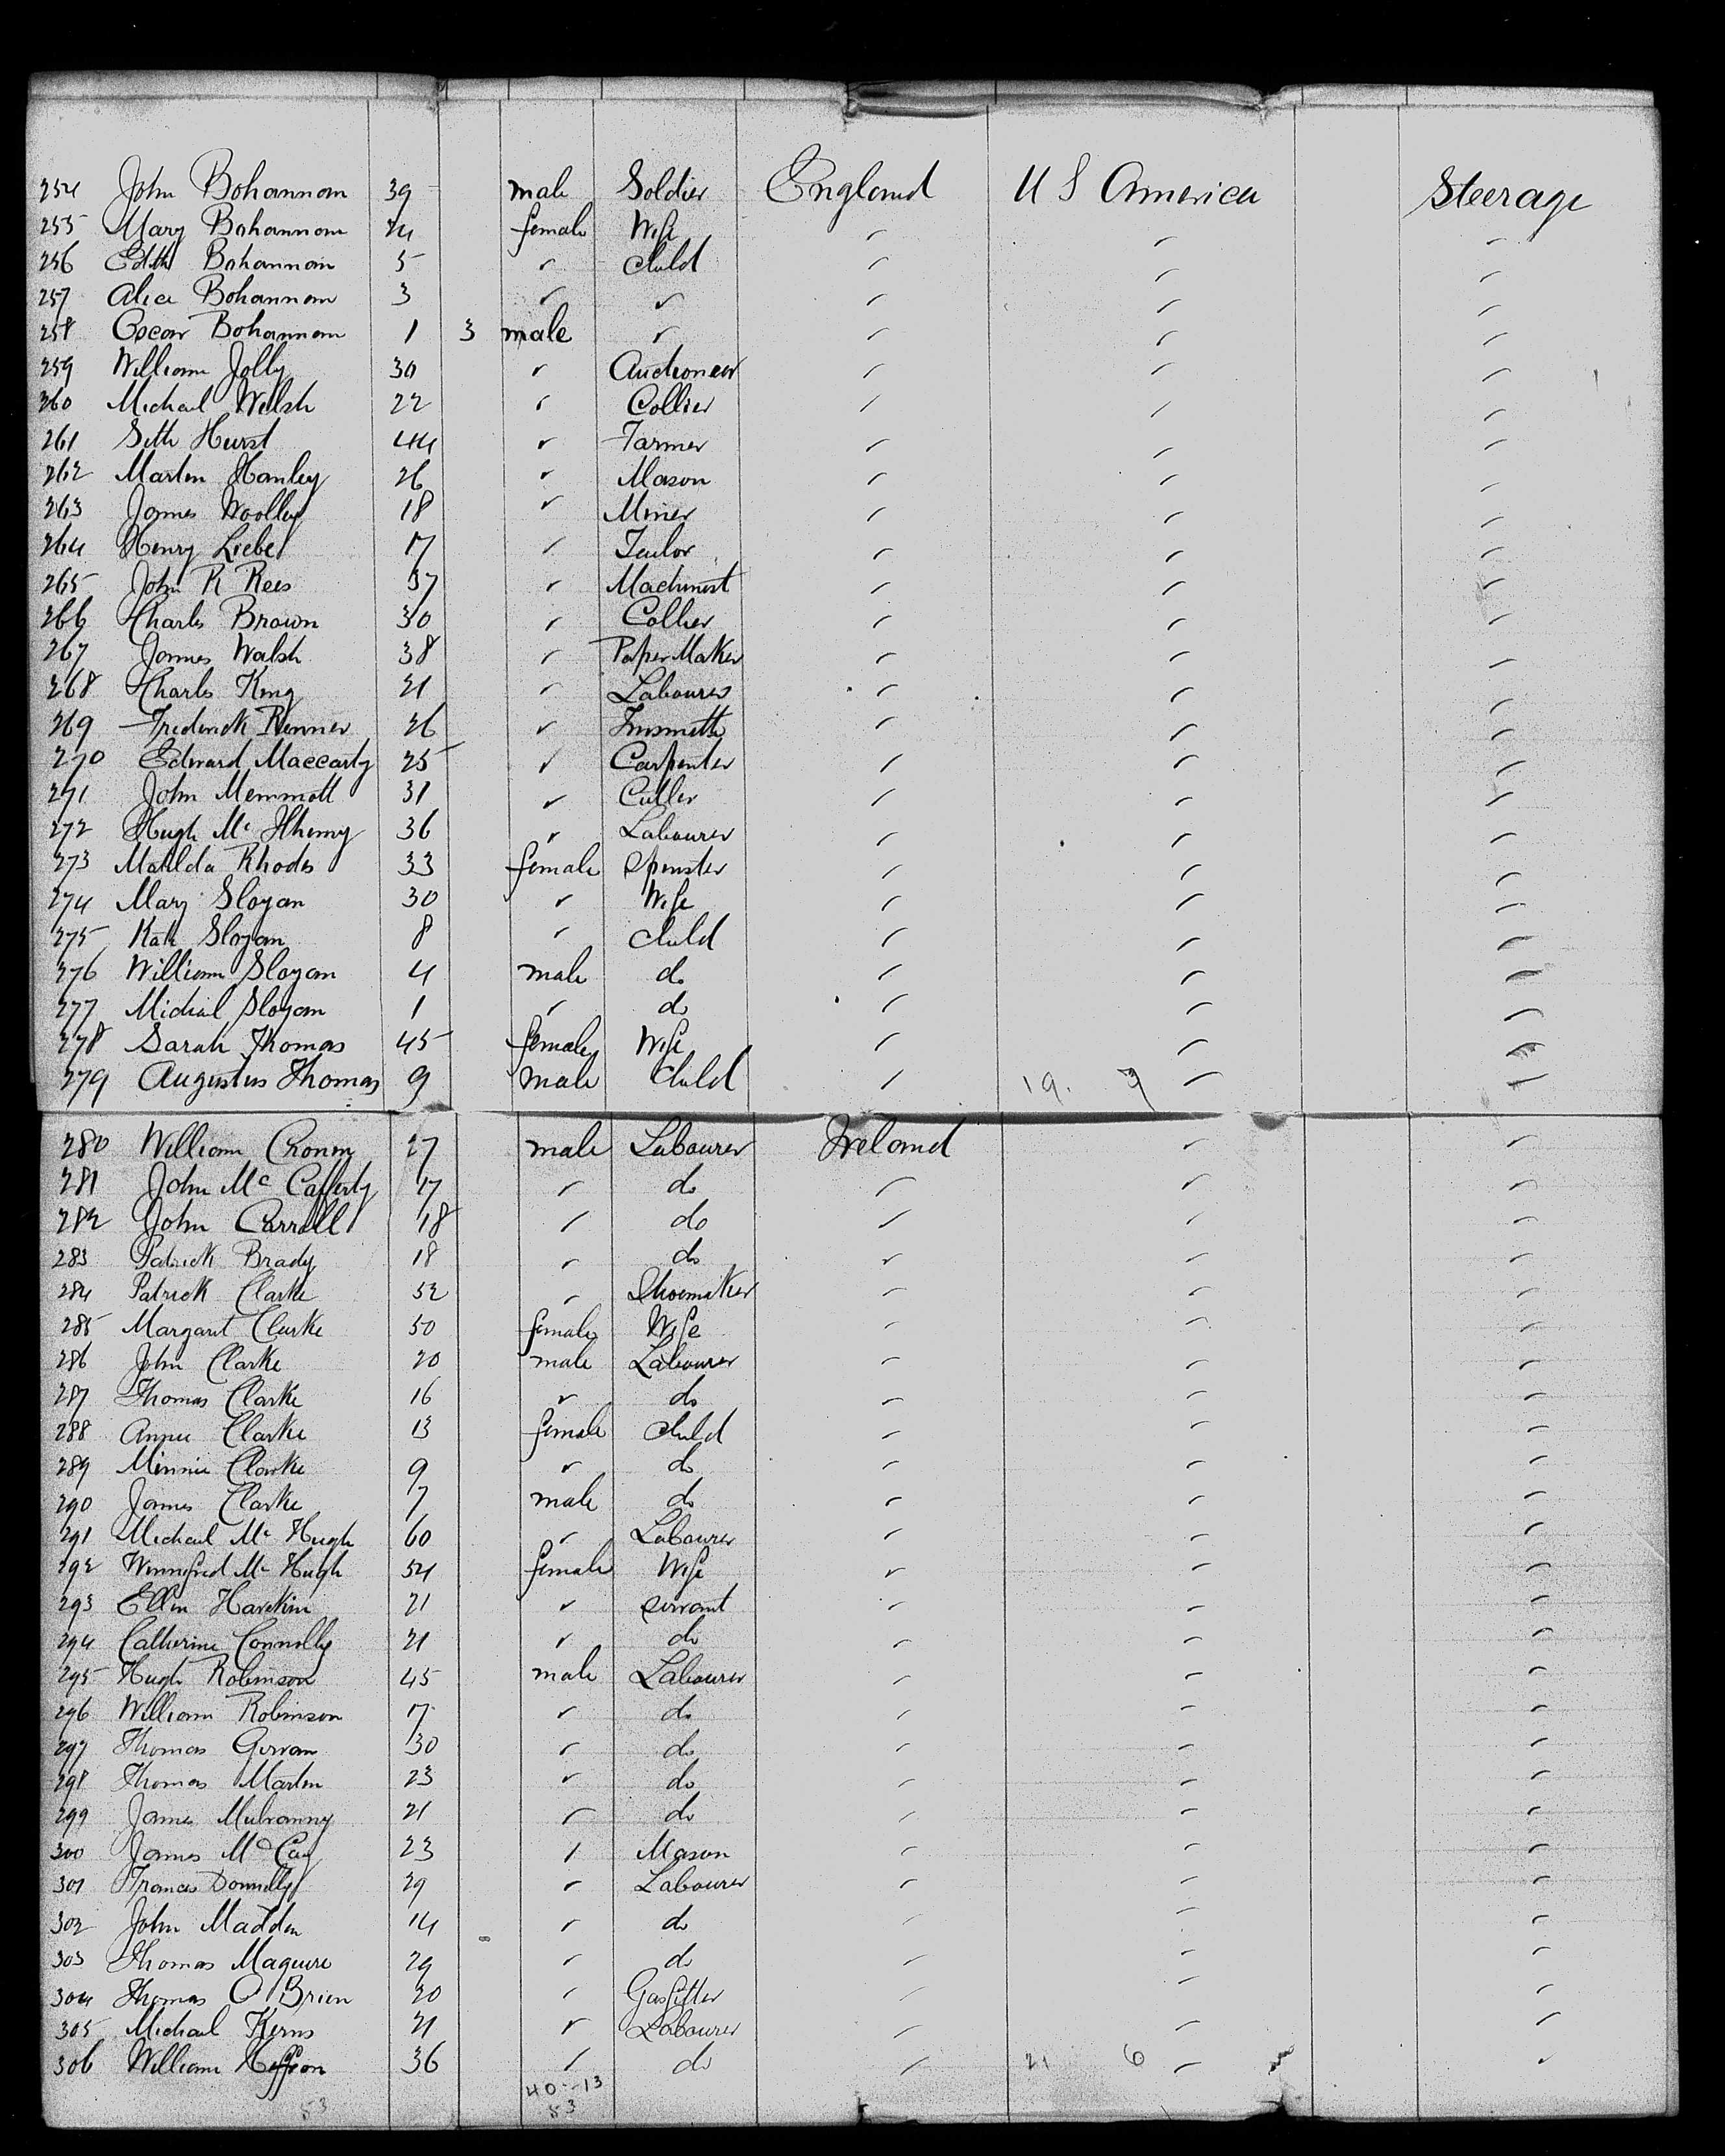 254 John Bohannan 39 male Soldier England U S America Steerage
255 Mary Bohannan 24 female Wife " " "
256 Edith Bohannan 5 " Child " " "
257 Alice Bohannan 3 " " " " "
258 Oscar Bohannan 1 3 male " " " "
259 William Jolly 30 " Auctioneer " " "
260 Michael Welsh 22 " Collier " " "
261 Seth Hurst 44 " Farmer " " "
262 Martin Hanley 26 " Mason " " "
263 James Woolley 18 " Miner " " "
264 Henry Liebel 17 " Tailor " " "
265 John R Rees 37 " Machinist " " "
266 Charles Brown 30 " Collier " " "
267 James Walsh 38 " Paper Maker " " "
268 Charles King 21 " Labourer " " "
269 Frederick Renner 26 " Tinsmith " " "
270 Edward Maccarty 25 " Carpenter " " "
271 John Memmott 31 " Cutler " " "
272 Hugh Mc 36 " Labourer " " "
273 Matilda Rhodes 33 female Spinster " " "
274 Mary Sloyan 30 " Wife " " "
275 Kate Sloyan 8 " Child " " "
276 William Sloyan 4 male do " " "
277 Michael Sloyan 1 " do " " "
278 Sarah Thomas 45 female Wife " " "
279 Augustus Thomas 9 male Child " 19. 7 " "
280 William Cronin 27 male Labourer Ireland " "
281 John Mc Cafferty 17 " do " " "
282 John Carroll 18 " do " " "
283 Patrick Brady 18 " do " " "
284 Patrick Clarke 52 " Shoemaker " " "
285 Margaret Clarke 50 female Wife " " "
286 John Clarke 20 male Labourer " " "
287 Thomas Clarke 16 " do " " "
288 Annie Clarke 13 female Child " " "
289 Minnie Clarke 9 " do " " "
290 James Clarke 7 male do " " "
291 Michael Mc Hugh 60 " Labourer " " "
292 Winnifred Mc Hugh 54 female Wife " " "
293 Ellen Harekin 21 " Servant " " "
294 Catherine Connolly 21 " do " " "
295 Hugh Robinson 45 male Labourer " " "
296 William Robinson 17 " do " " "
297 Thomas Girvan 30 " do " " "
298 Thomas Martin 23 " do " " "
299 James Mulvanny 21 " do " " "
300 James Mc Cay 23 " Mason " " "
301 Francis Donnelly 29 " Labourer " " "
302 John Madden 14 " do " " "
303 Thomas Maguire 29 " do " " "
304 Thomas O Brien 20 " Gasfitter " " "
305 Michael Kerns 21 " Labourer " " "
306 William Heffron 36 " do " 21 6 " "
40-13
53 53